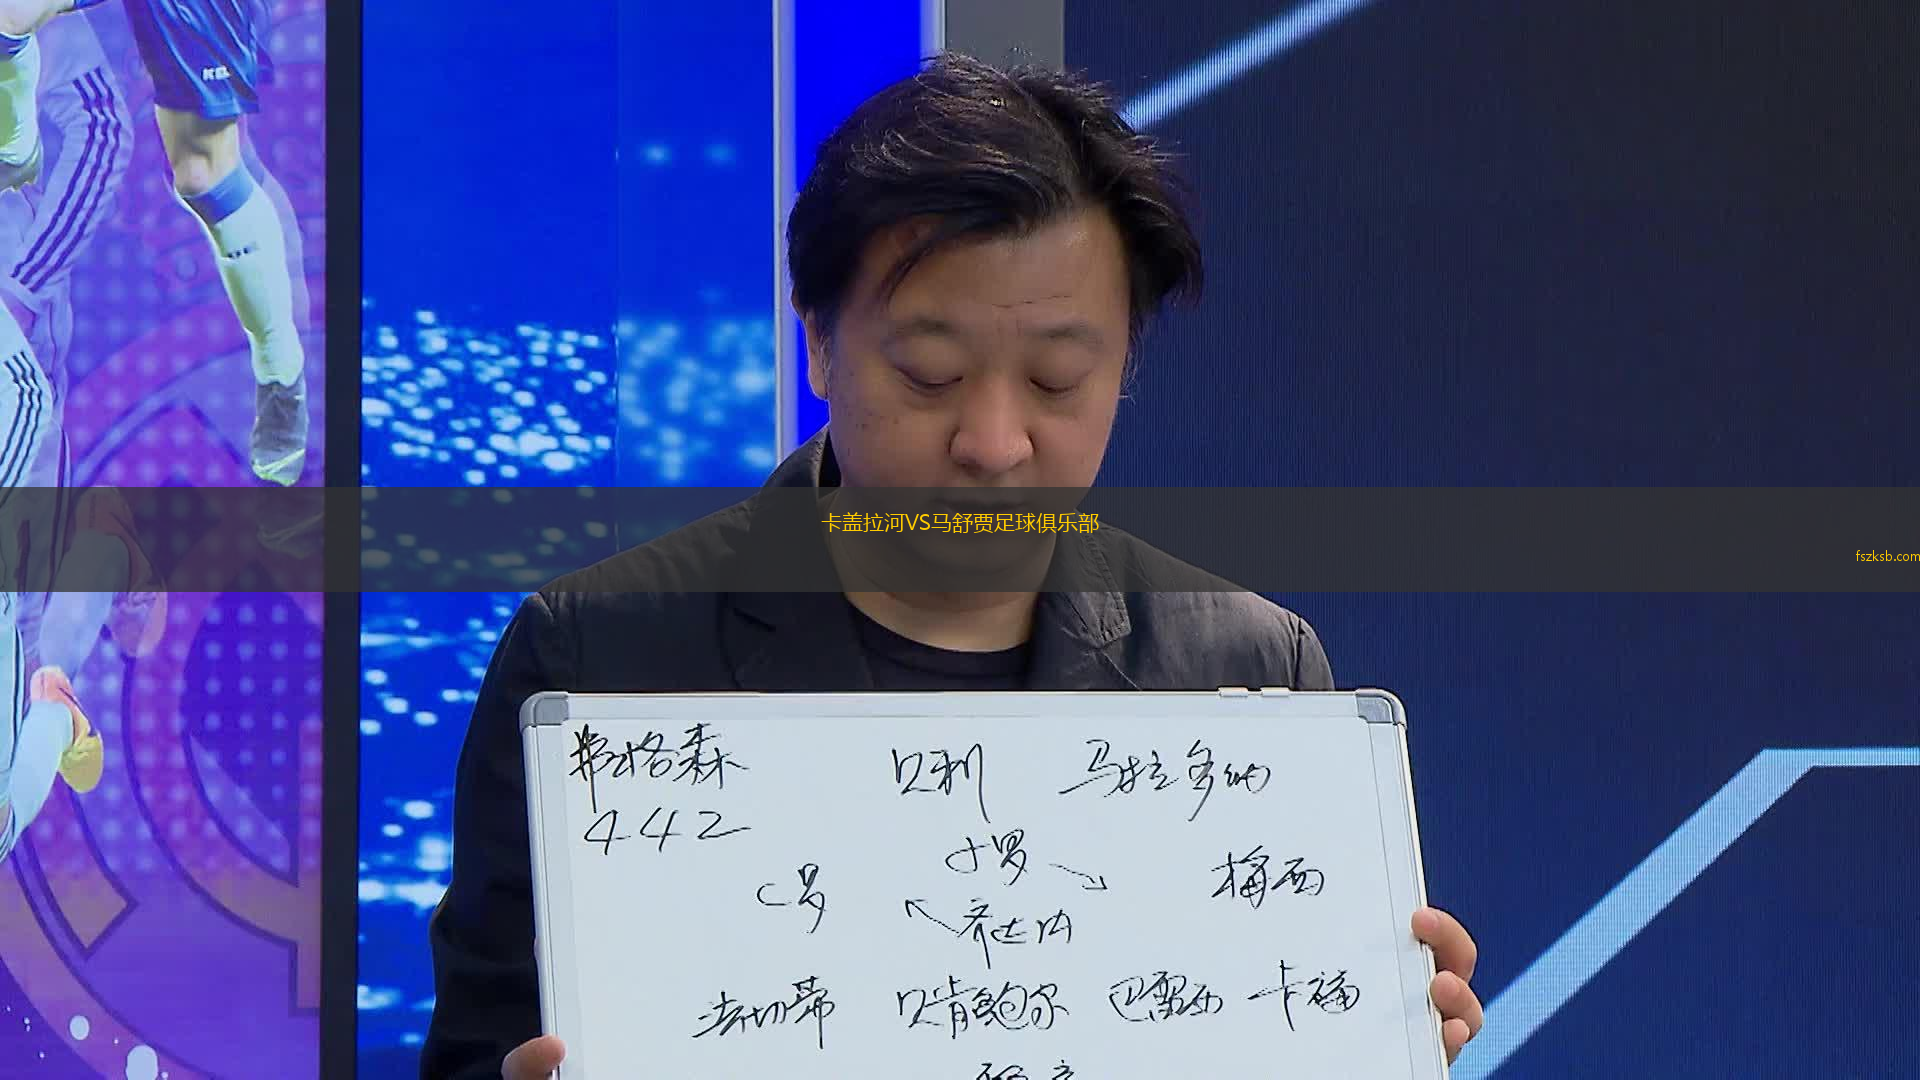 卡盖拉河VS马舒贾足球俱乐部
fszksb.com
弗格森 贝利 马拉多纳
442
小罗
C罗 梅西
齐达内
法切蒂 贝肯鲍尔 巴雷西 卡福